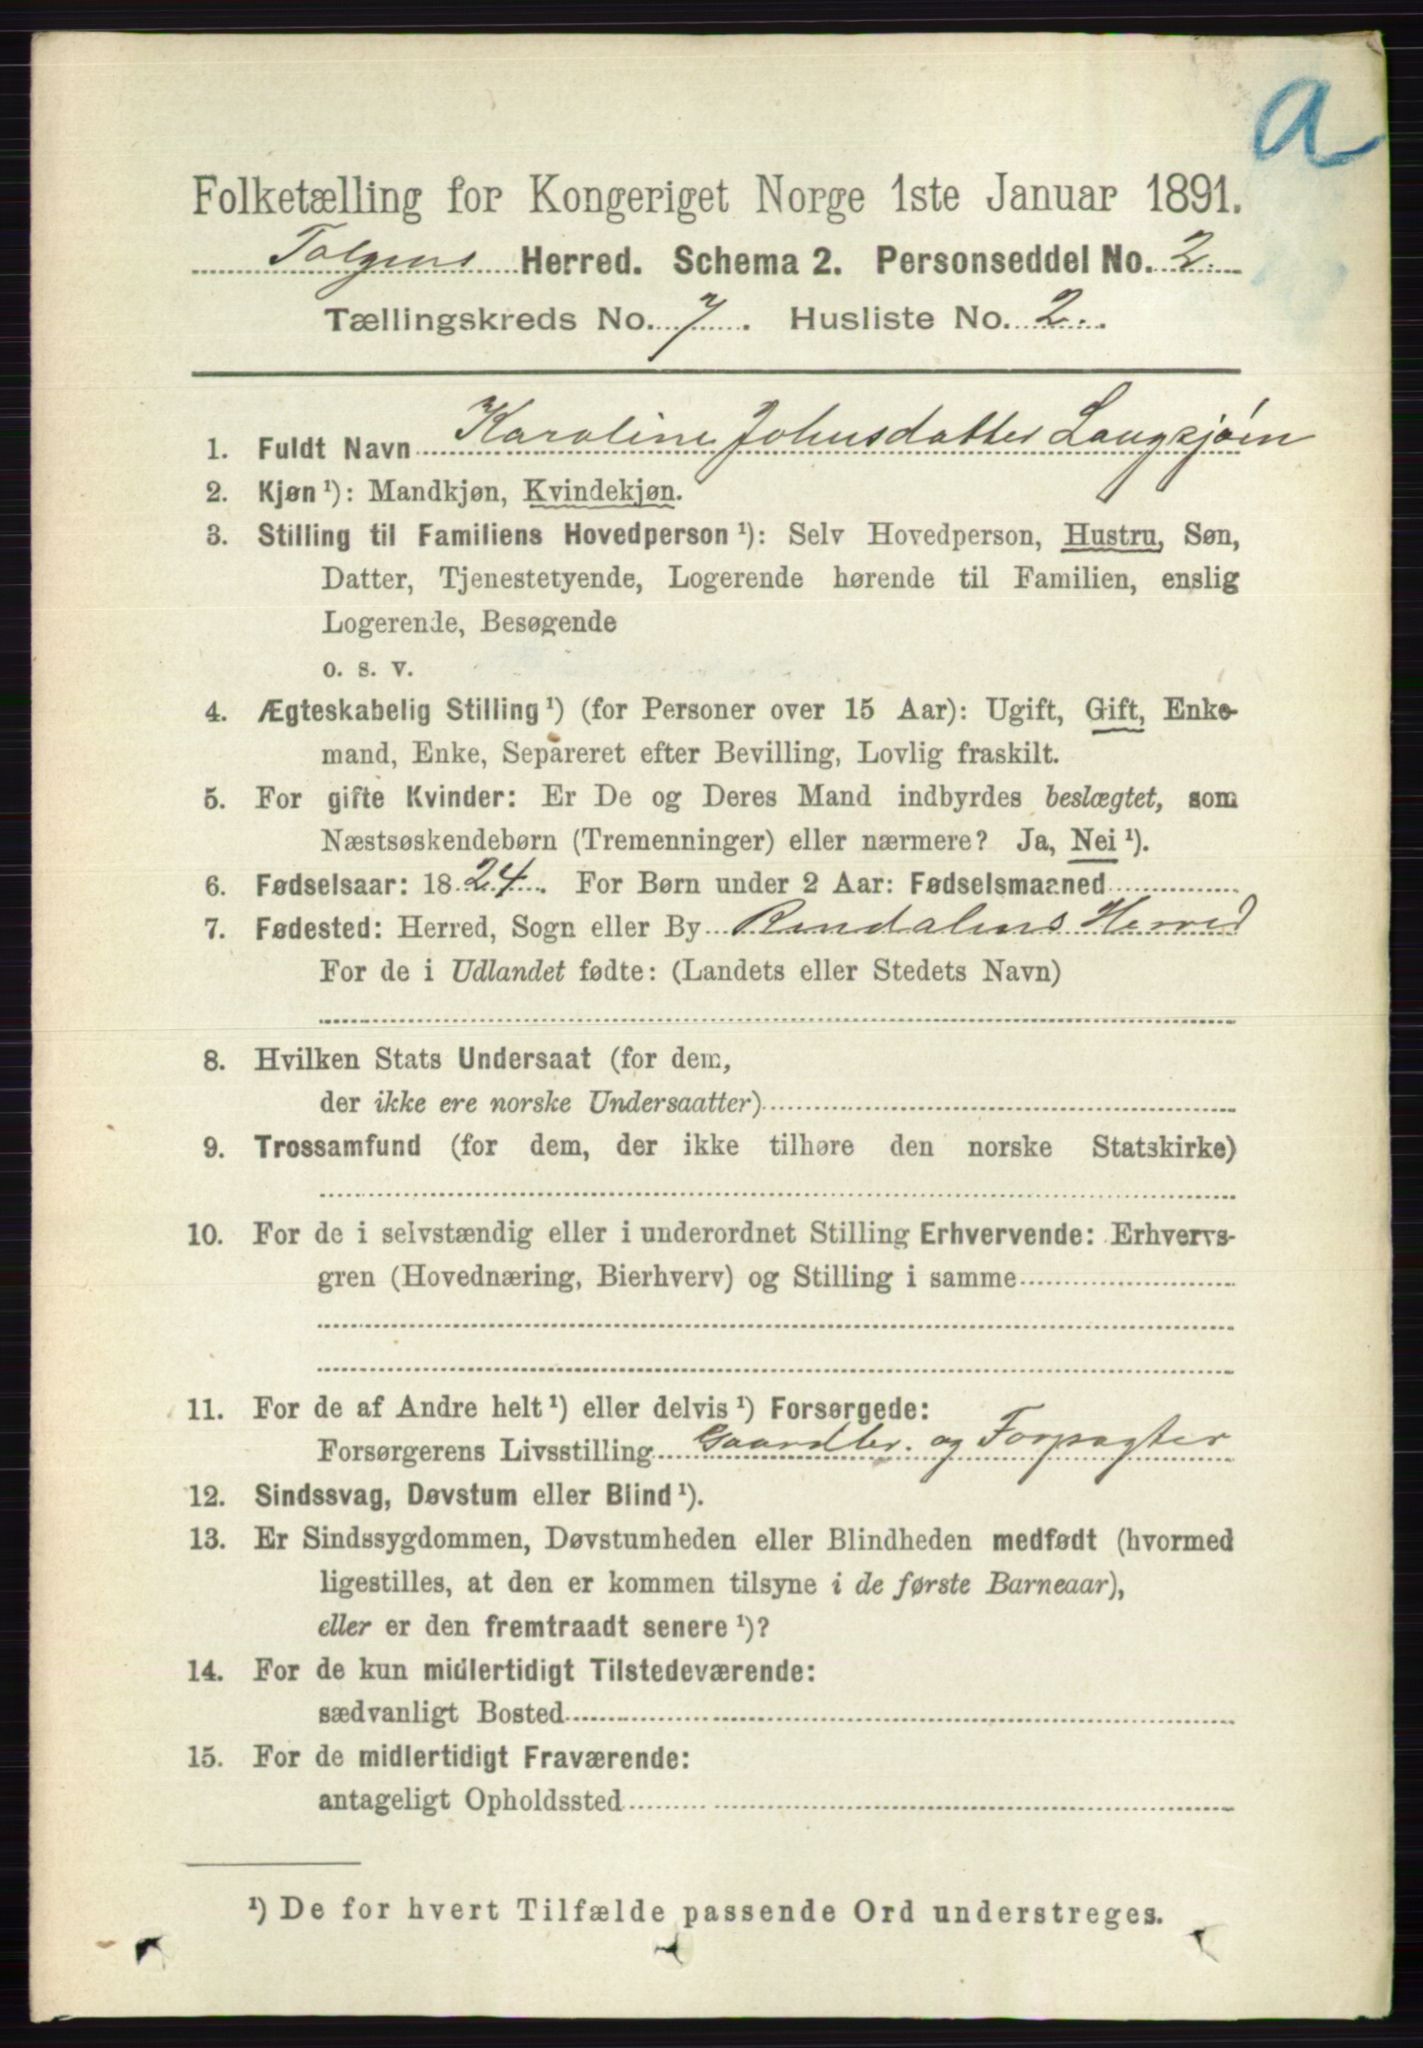 a
Folketælling for Kongeriget Norge 1ste Januar 1891.
Tolgens Herred. Schema 2. Personseddel No. 2.
Tællingskreds No. 7. Husliste No. 2.
1. Fuldt Navn Karoline Johnsdatter Langsjøen
2. Kjøn ¹): Mandkjøn, Kvindekjøn.
3. Stilling til Familiens Hovedperson ¹): Selv Hovedperson, Hustru, Søn,
Datter, Tjenestetyende, Logerende hørende til Familien, enslig
Logerende, Besøgende
o. s. v.
4. Ægteskabelig Stilling ¹) (for Personer over 15 Aar): Ugift, Gift, Enke-
mand, Enke, Separeret efter Bevilling, Lovlig fraskilt.
5. For gifte Kvinder: Er De og Deres Mand indbyrdes beslægtet, som
Næstsøskendebørn (Tremenninger) eller nærmere? Ja, Nei ¹).
6. Fødselsaar: 1824. For Børn under 2 Aar: Fødselsmaaned
7. Fødested: Herred, Sogn eller By Rendalens Herred
For de i Udlandet fødte: (Landets eller Stedets Navn)
8. Hvilken Stats Undersaat (for dem,
der ikke ere norske Undersaatter)
9. Trossamfund (for dem, der ikke tilhøre den norske Statskirke)
10. For de i selvstændig eller i underordnet Stilling Erhvervende: Erhvervs-
gren (Hovednæring, Bierhverv) og Stilling i samme
11. For de af Andre helt ¹) eller delvis ¹) Forsørgede:
Forsørgerens Livsstilling Gaardbr. og Forpagter
12. Sindssvag, Døvstum eller Blind ¹).
13. Er Sindssygdommen, Døvstumheden eller Blindheden medfødt (hvormed
ligestilles, at den er kommen tilsyne i de første Barneaar),
eller er den fremtraadt senere ¹)?
14. For de kun midlertidigt Tilstedeværende:
sædvanligt Bosted
15. For de midlertidigt Fraværende:
antageligt Opholdssted
¹) De for hvert Tilfælde passende Ord understreges.